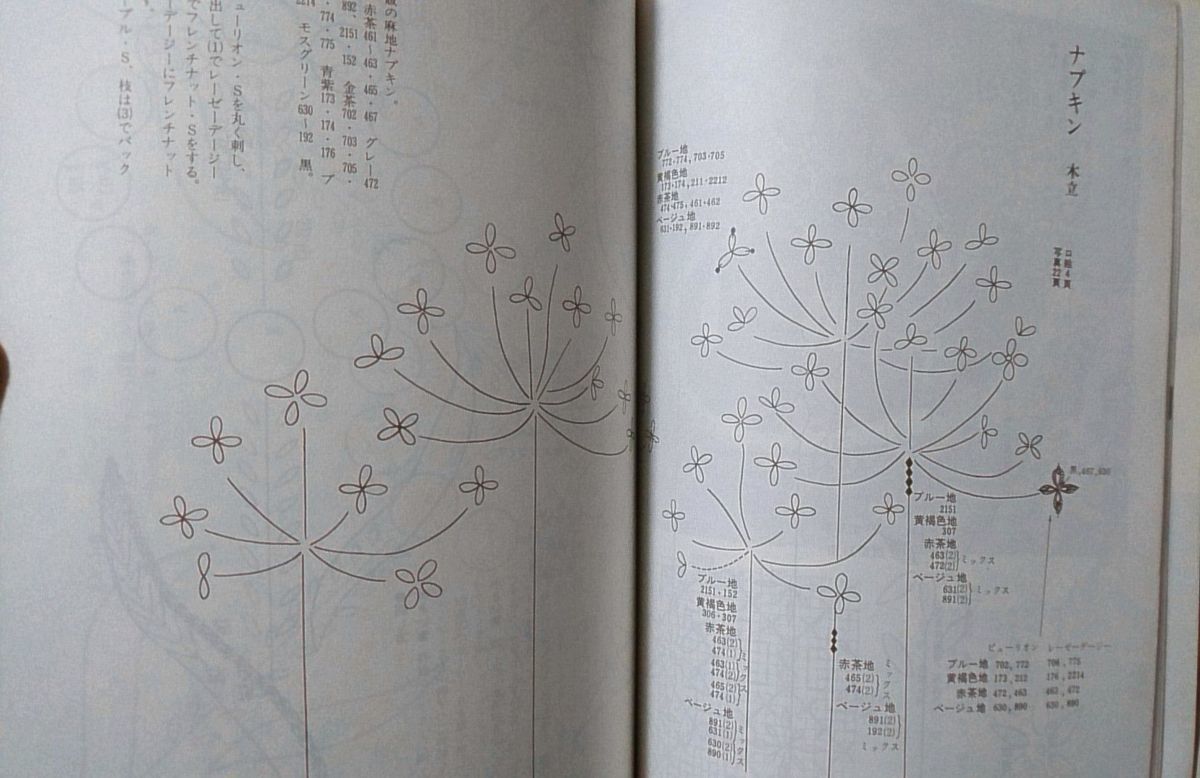 ナプキン 木立
口絵4頁
写真22頁
ブルー地
772・774, 703・705
黄褐色地
173・174, 211・2212
赤茶地
474・475, 461・462
ベージュ地
631・192, 891・892
黒, 467, 630
ブルー地
2151
黄褐色地
307
赤茶地
463(2)
472(2)
ミックス
ベージュ地
631(2)
891(2)
ミックス
ブルー地
2151・152
黄褐色地
306・307
赤茶地
463(2)
474(1)
463(1)
474(2)
465(2)
474(1)
ミックス
ベージュ地
891(2)
631(1)
630(2)
890(1)
ミックス
赤茶地
465(2)
474(2)
ミックス
ベージュ地
891(2)
192(2)
ミックス
ビューリオン レーゼーデージー
ブルー地 702, 772 706, 775
黄褐色地 173, 212 176, 2214
赤茶地 472, 463 463, 472
ベージュ地 630, 890 630, 890
の麻地ナプキン。
赤茶461～463・465・467 グレー472
892、2151・152 金茶702・703・705・
・774・775 青紫173・174・176 ブ
2214 モスグリーン630～192 黒。
ューリオン・Sを丸く刺し、
出して(1)でレーゼーデージー
でフレンチナット・Sをする。
ーデージーにフレンチナット
す。
ープル・S、枝は(3)でバック